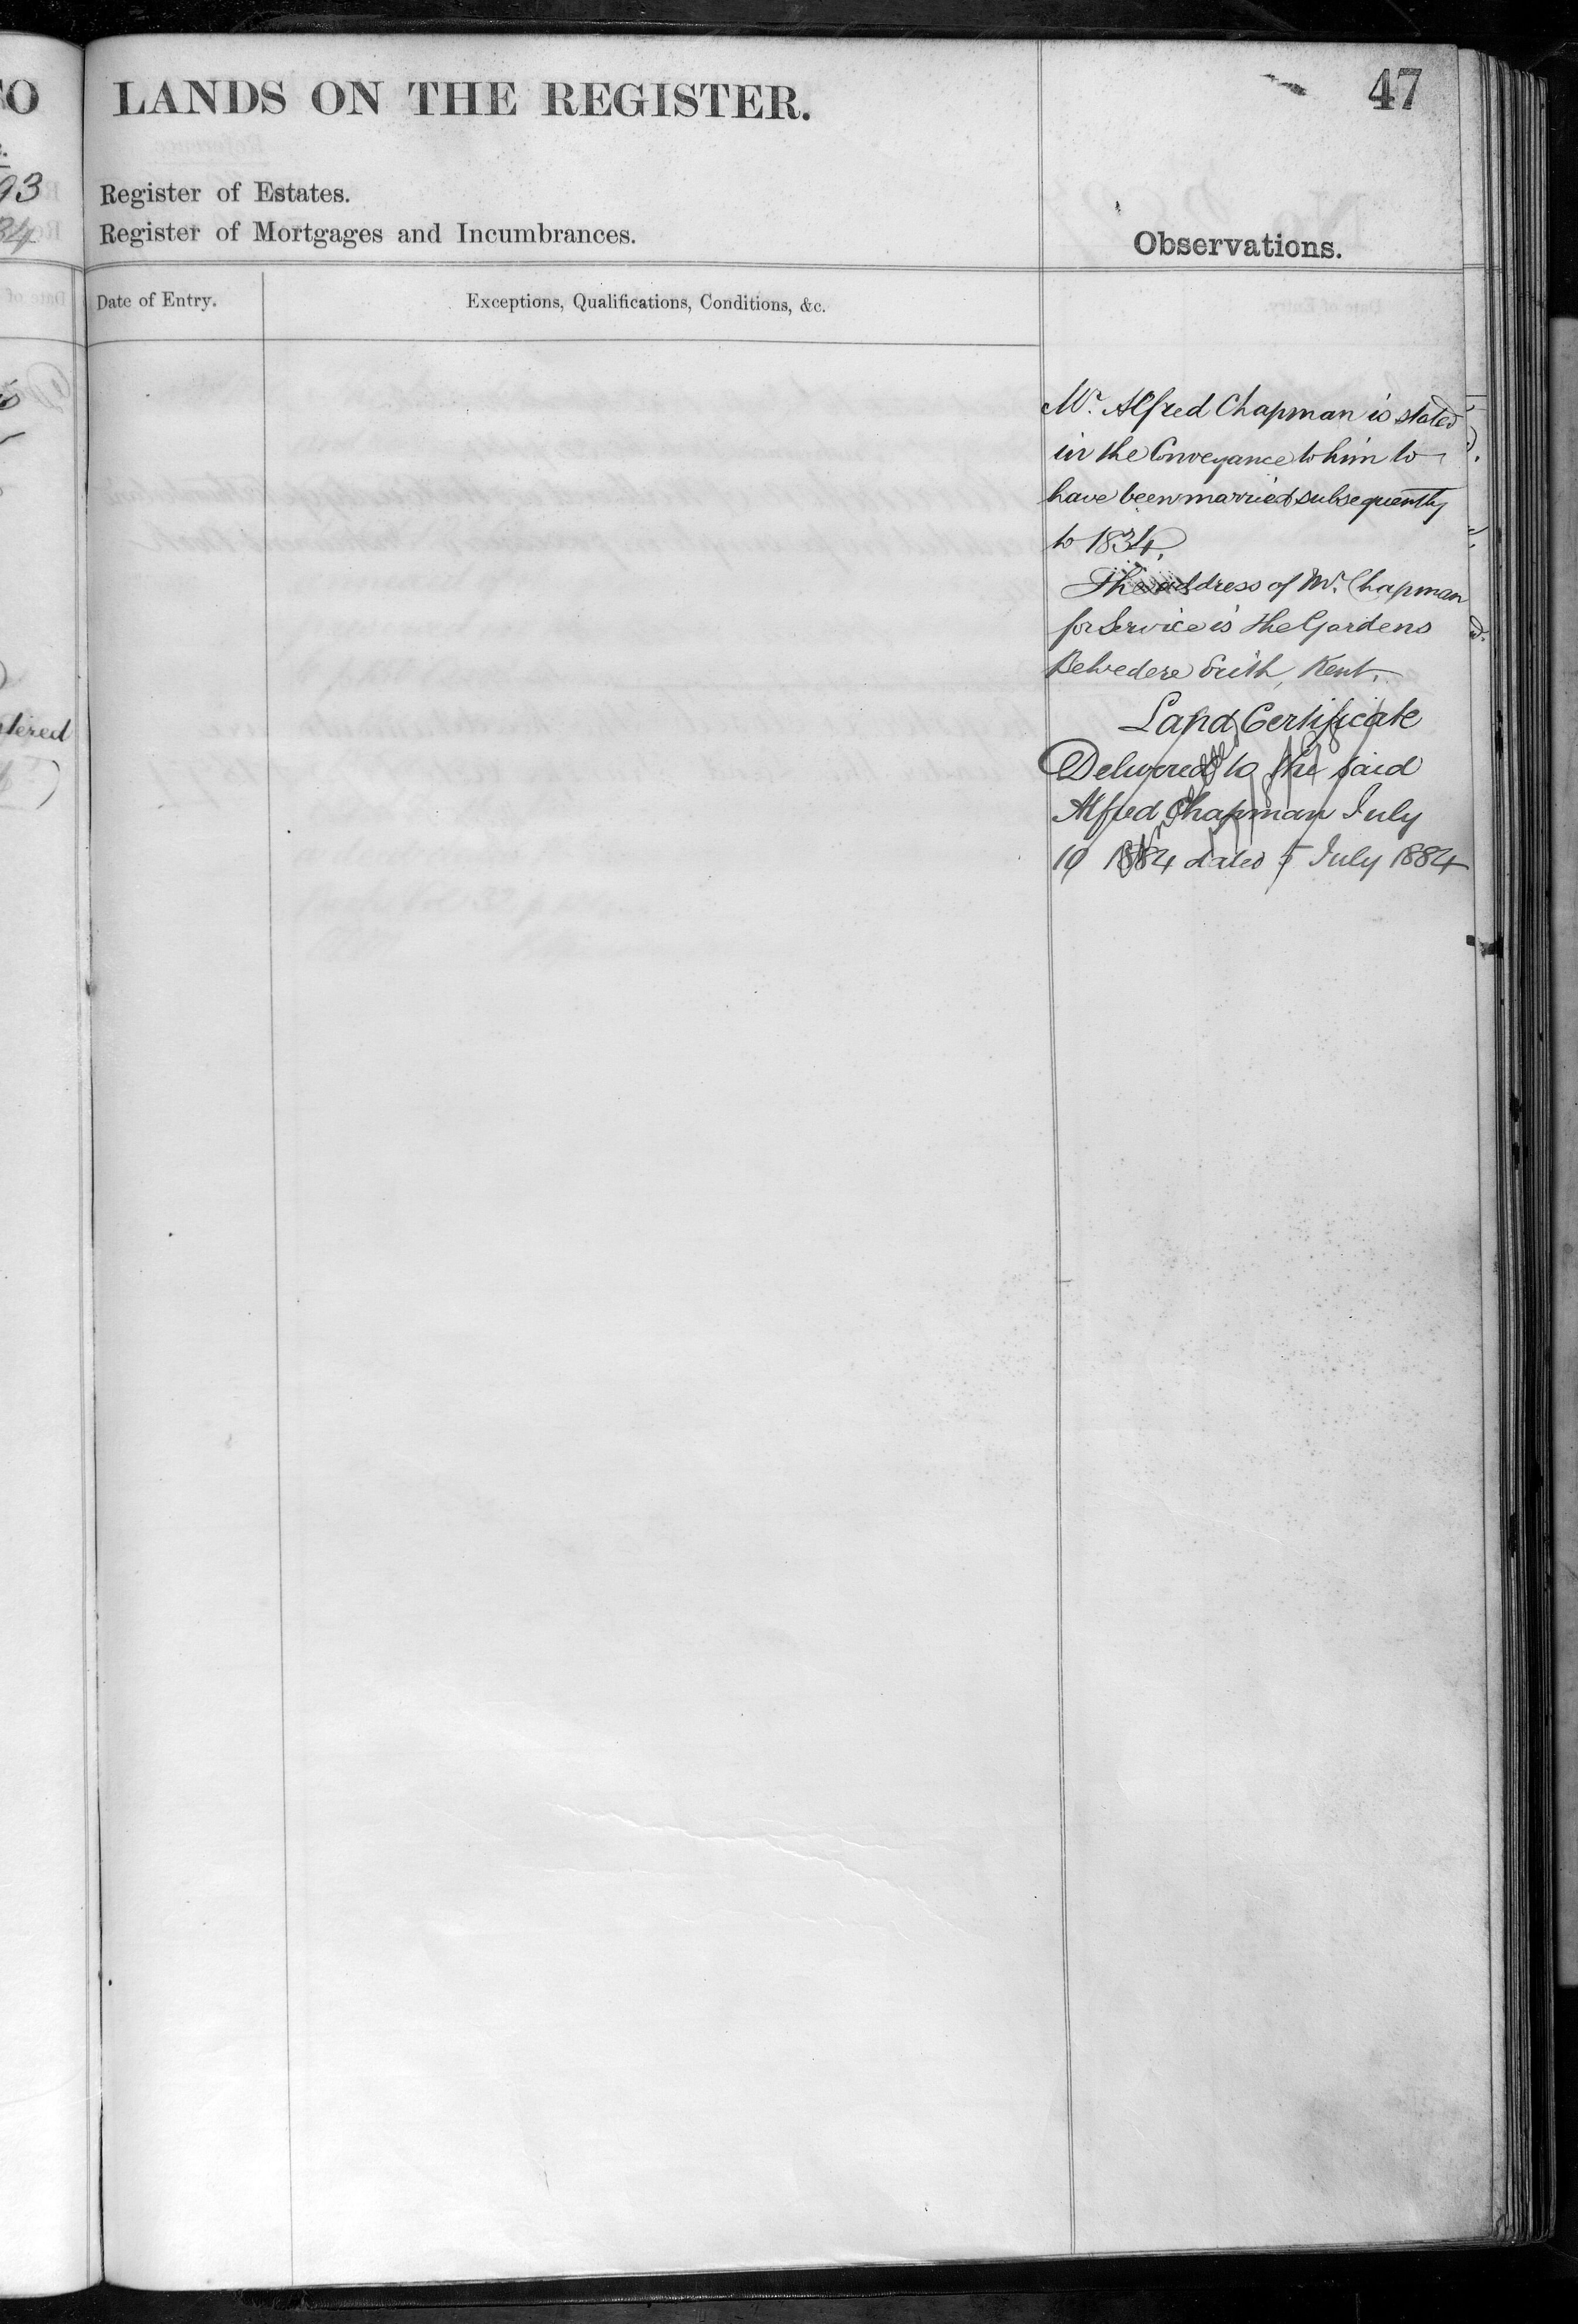 47
LANDS ON THE REGISTER.
Register of Estates.
Register of Mortgages and Incumbrances.
Observations.
Date of Entry.
Exceptions, Qualifications, Conditions, &c.
Mr. Alfred Chapman is stated
in the Conveyance to him to
have been married subsequently
to 1834.
The address of Mr. Chapman
for Service is The Gardens
Belvedere Erith, Kent.
Land Certificate
Delivered to the said
Alfred Chapman July
10 1884 dated 5 July 1884
O
93
34
tered